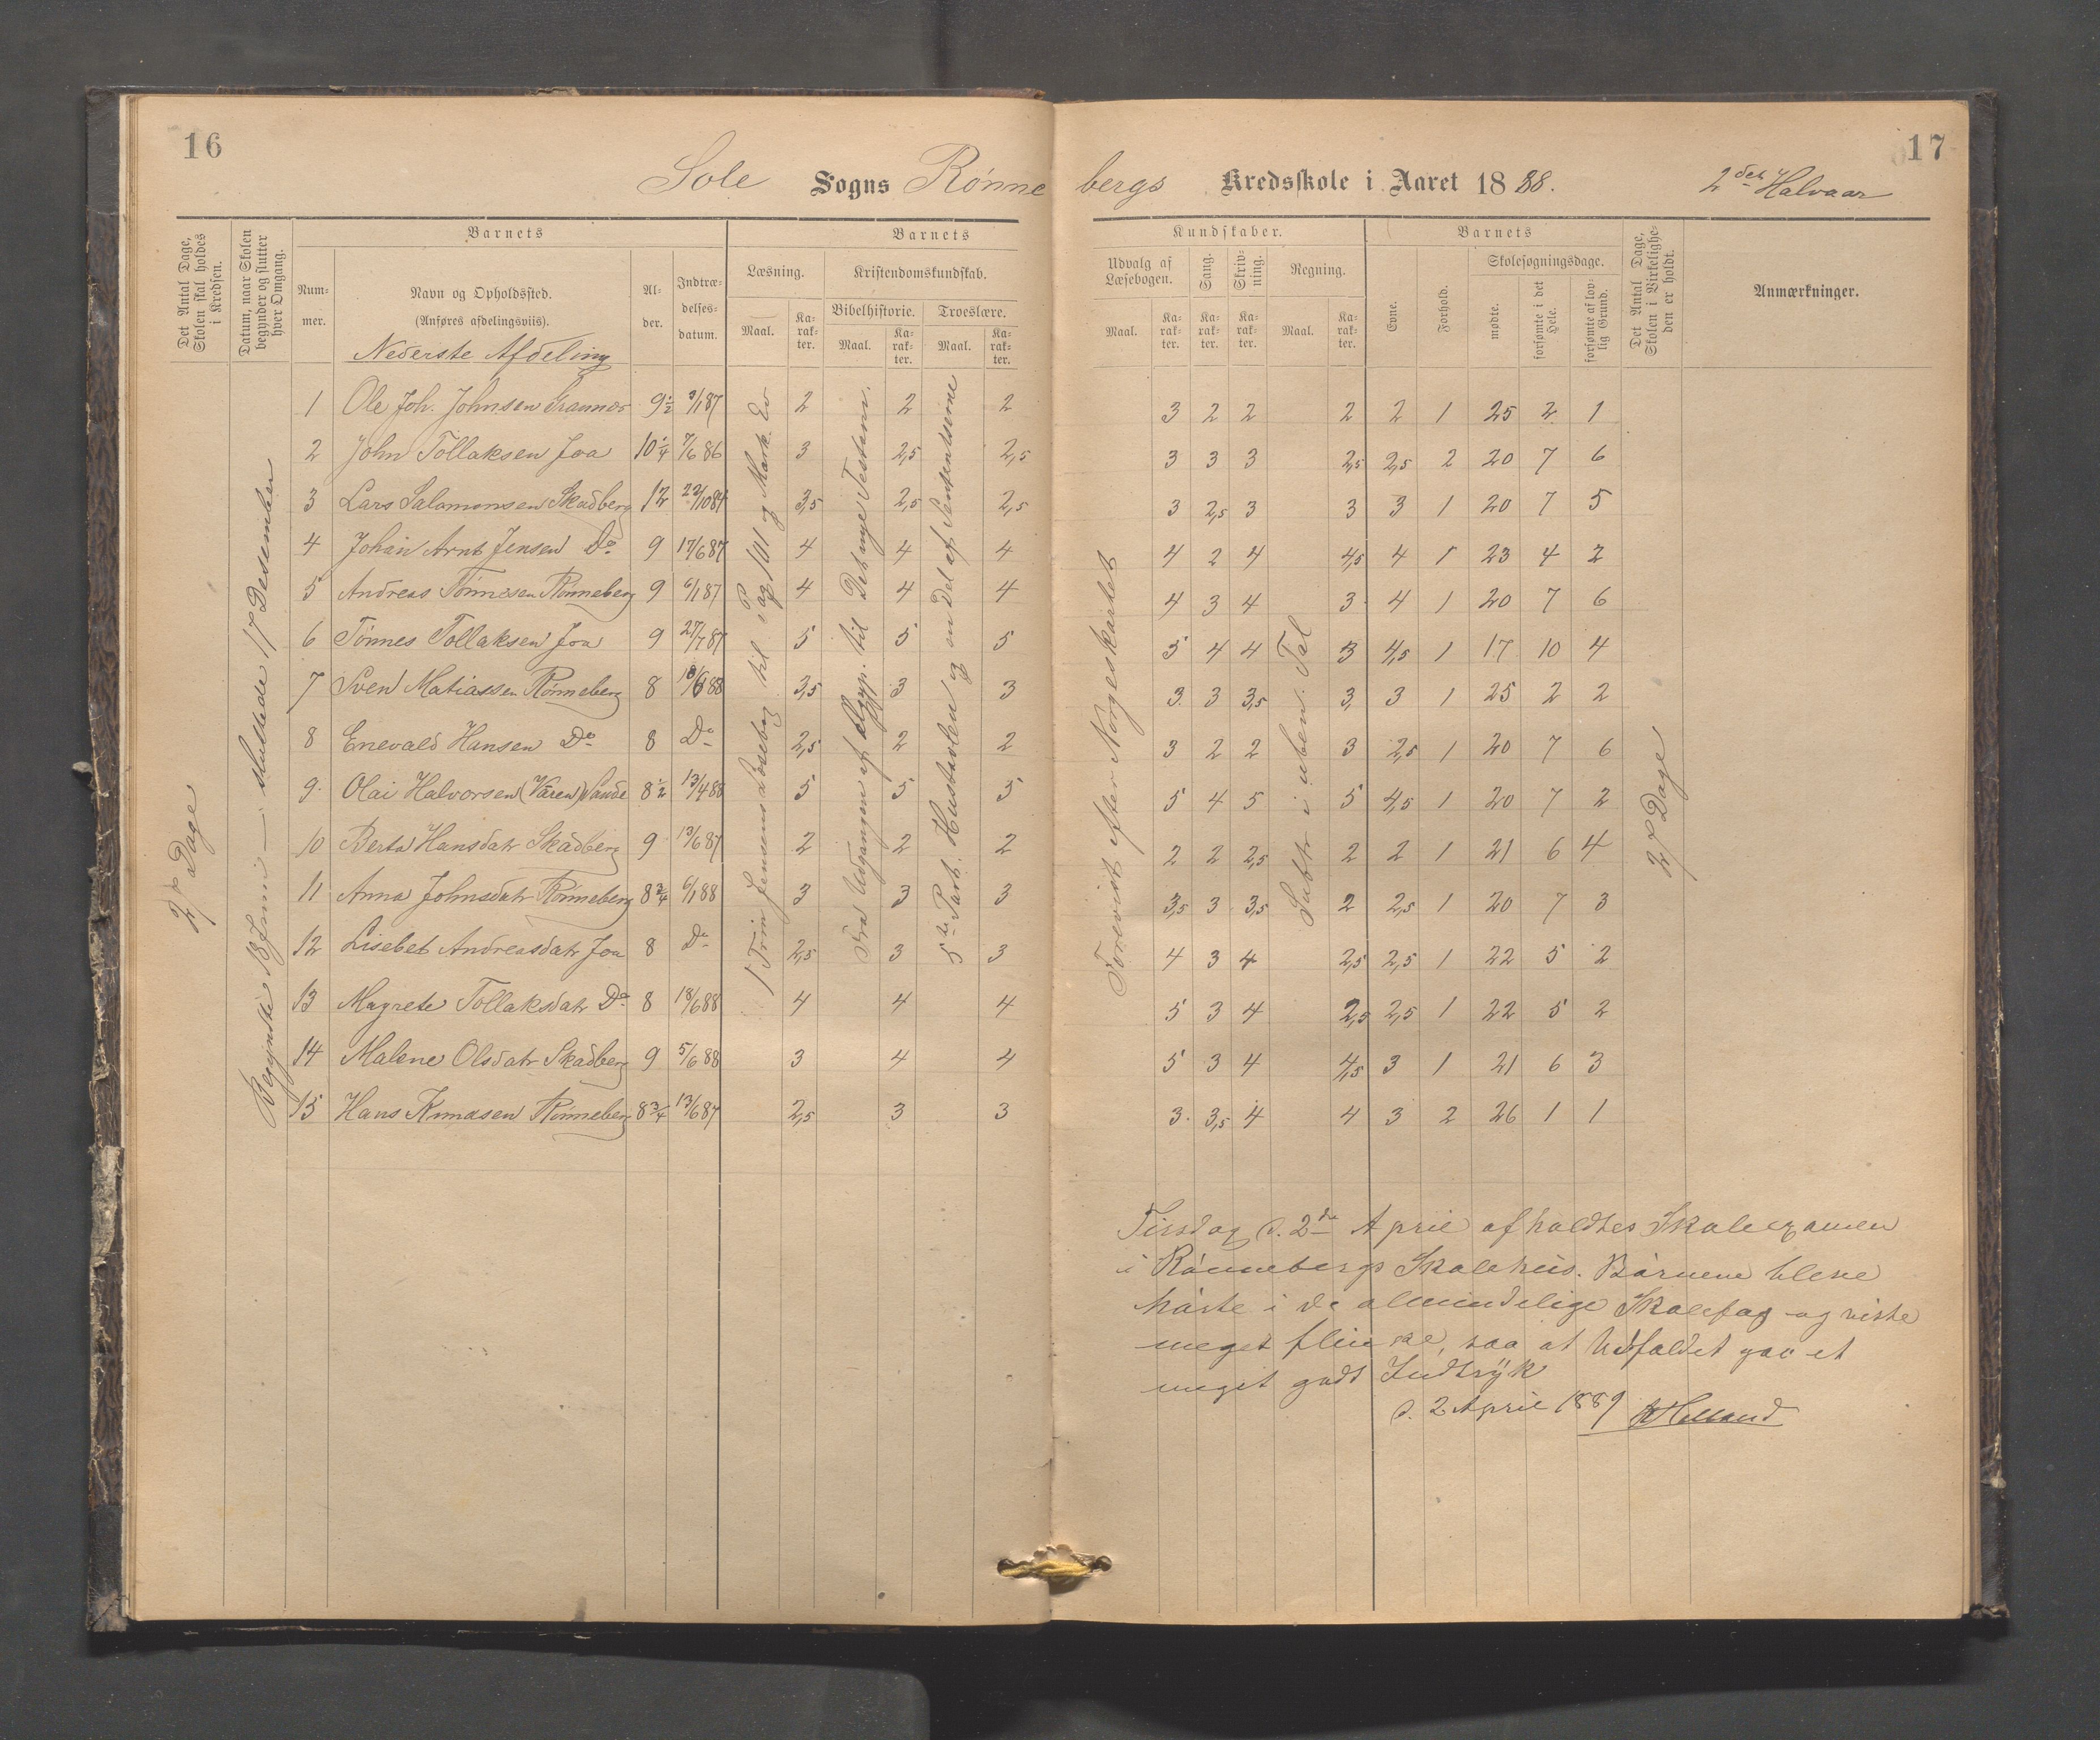 16
Sole Sogns Rønne
Det Antal Dage, Skolen skal holdes i Kredsen.
Datum, naar Skolen begynder og slutter hver Omgang.
Barnets
Barnets
Num-mer.
Navn og Opholdssted.
(Anføres afdelingsviis).
Al-der.
Indtræ-delses-datum.
Læsning.
Kristendomskundskab.
Bibelhistorie. Troeslære.
Maal. Ka-rak-ter. Maal. Ka-rak-ter. Maal. Ka-rak-ter.
Nederste Afdeling
27 Dage
Begyndte 18 Juni — sluttede 17 Desember
1 Trin Jensens Læsebog til Pag 101 og Mark. Ev
Fra Udgangen af Ægyp. til Det nye Testam.
5te Part. Hustavlen og en Del af Sententserne
1 Ole Joh. Johnsen 9½ 3/1 87 2 2 2
2 John Tollaksen Joa 10¼ 7/6 86 3 2,5 2,5
3 Lars Salomonsen Skadberg 12 22/10 84 3,5 2,5 2,5
4 Johan Arnt Jensen Do 9 17/6 87 4 4 4
5 Andreas Tønnesen Rønneberg 9 6/1 87 4 4 4
6 Tønnes Tollaksen Joa 9 27/7 87 5 5 5
7 Sven Matiassen Rønneberg 8 18/6 88 3,5 3 3
8 Enevald Hansen Do 8 Do 2,5 2 2
9 Olai Halvorsen (Væren) Sande 8½ 13/4 88 5 5 5
10 Berta Hansdatr Skadberg 9 13/6 87 2 2 2
11 Anna Johnsdatr Rønneberg 8¾ 6/1 88 3 3 3
12 Lisebet Andreasdatr Joa 8 Do 2,5 3 3
13 Magrete Tollaksdatr Do 8 18/6 88 4 4 4
14 Malene Olsdatr Skadberg 9 5/6 88 3 4 4
15 Hans Knudsen Rønneberg 8¾ 13/6 87 2,5 3 3
17
bergs Kredsskole i Aaret 1888. 2det Halvaar
Kundskaber.
Barnets
Udvalg af Læsebogen.
Sang.
Skriv-ning.
Regning.
Evne.
Forhold.
Skolesøgningsdage.
mødte.
forsømte i det Hele.
forsømte af lov-lig Grund.
Det Antal Dage, Skolen i Virkelighe-den er holdt.
Anmærkninger.
Maal. Ka-rak-ter. Ka-rak-ter. Ka-rak-ter. Maal. Ka-rak-ter.
Forevist efter Norgeskartet
Subtr i uben. Tal
27 Dage
3 2 2 2 2 1 25 2 1
3 3 3 2,5 2,5 2 20 7 6
3 2,5 3 3 3 1 20 7 5
4 2 4 4,5 4 1 23 4 2
4 3 4 3 4 1 20 7 6
5 4 4 3 4,5 1 17 10 4
3 3 3,5 3 3 1 25 2 2
3 2 2 3 2,5 1 20 7 6
5 4 5 5 4,5 1 20 7 2
2 2 2,5 2 2 1 21 6 4
3,5 3 3,5 2 2,5 1 20 7 3
4 3 4 2,5 2,5 1 22 5 2
5 3 4 2,5 2,5 1 22 5 2
5 3 4 4,5 3 1 21 6 3
3 3,5 4 4 3 2 26 1 1
Tirsdag d. 2den April afholdtes Skoleexamen
i Rønnebergs Skolehus. Børnene bleve
hørte i de almindelige Skolefag og viste
meget flinke, saa at Udfaldet gav et
meget godt Indtryk
d. 2 April 1889 Helland